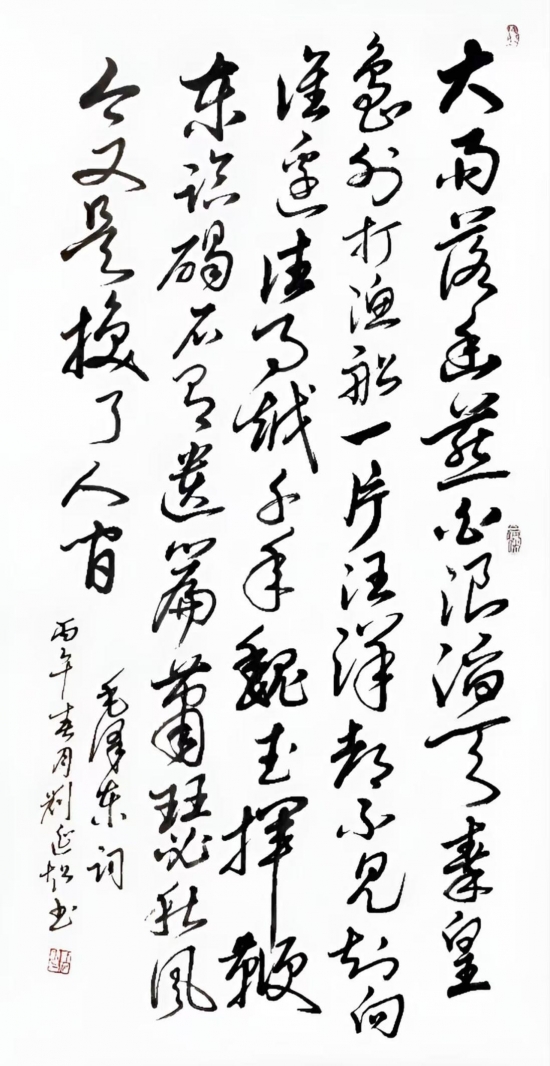 大雨落幽燕白浪滔天秦皇
岛外打渔船一片汪洋都不见知向
谁边往事越千年魏武揮鞭
东临碣石有遗篇萧瑟秋风
今又是换了人间
毛泽东词
丙午春月刘延书